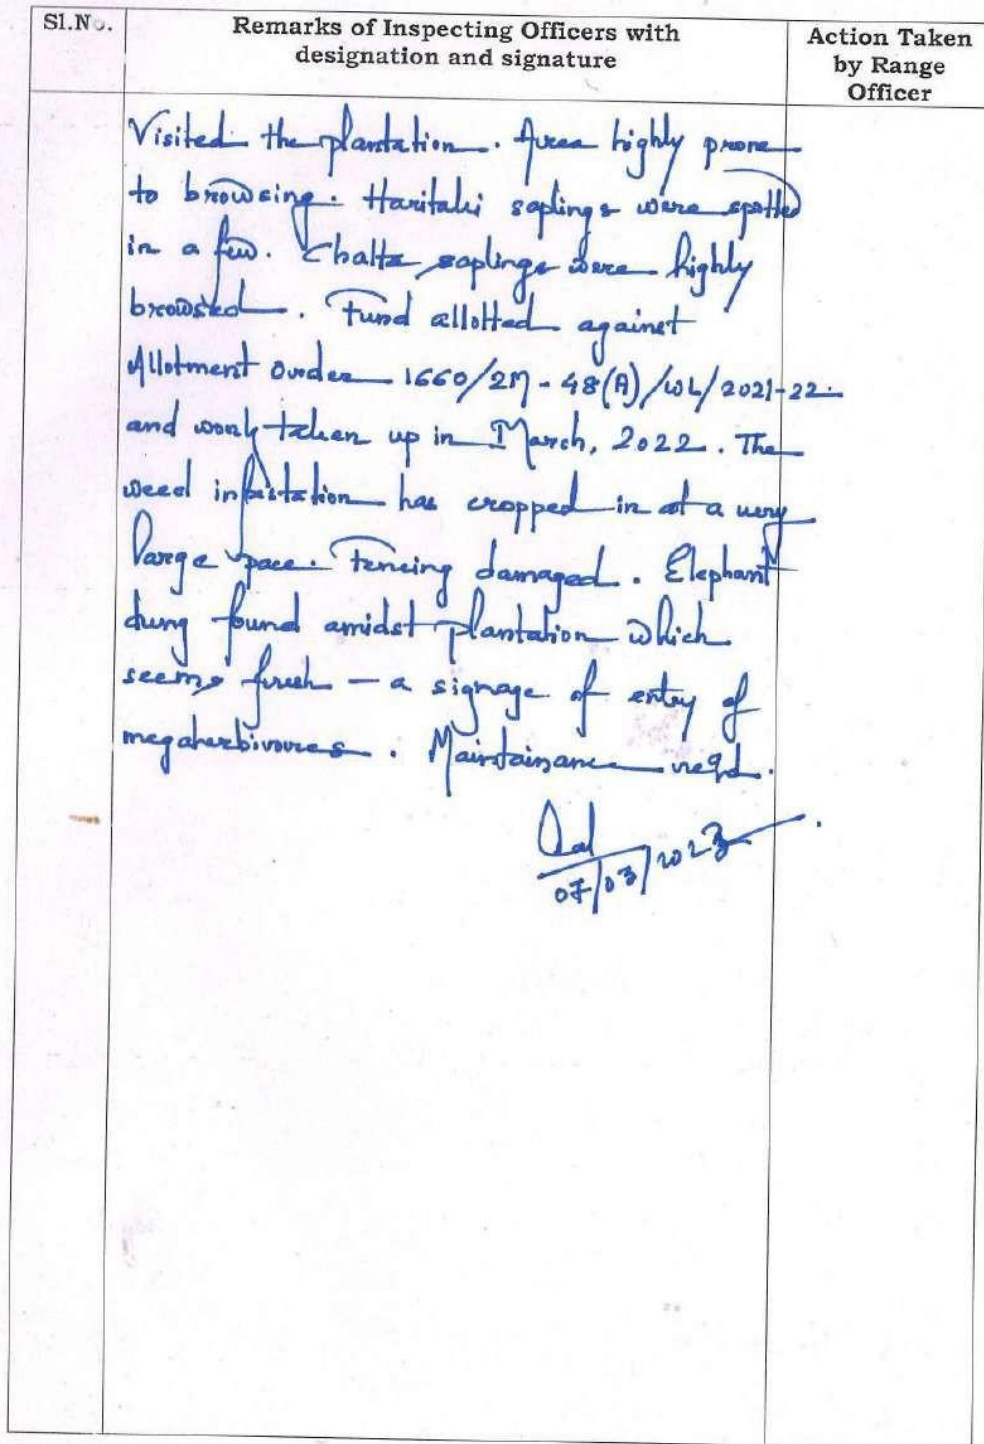 Sl.No.
Remarks of Inspecting Officers with
designation and signature
Action Taken
by Range
Officer
Visited the plantation. Area highly prone
to browsing. Haritaki saplings were spotted
in a few. Chalta saplings were highly
browsed. Fund allotted against
Allotment Order 1660/2M-48(A)/WL/2021-22.
and work taken up in March, 2022. The
weed infestation has cropped in at a very
large pace. Fencing damaged. Elephant
dung found amidst plantation which
seems fresh - a signage of entry of
megaherbivores. Maintainance reqd.
07/03/2023